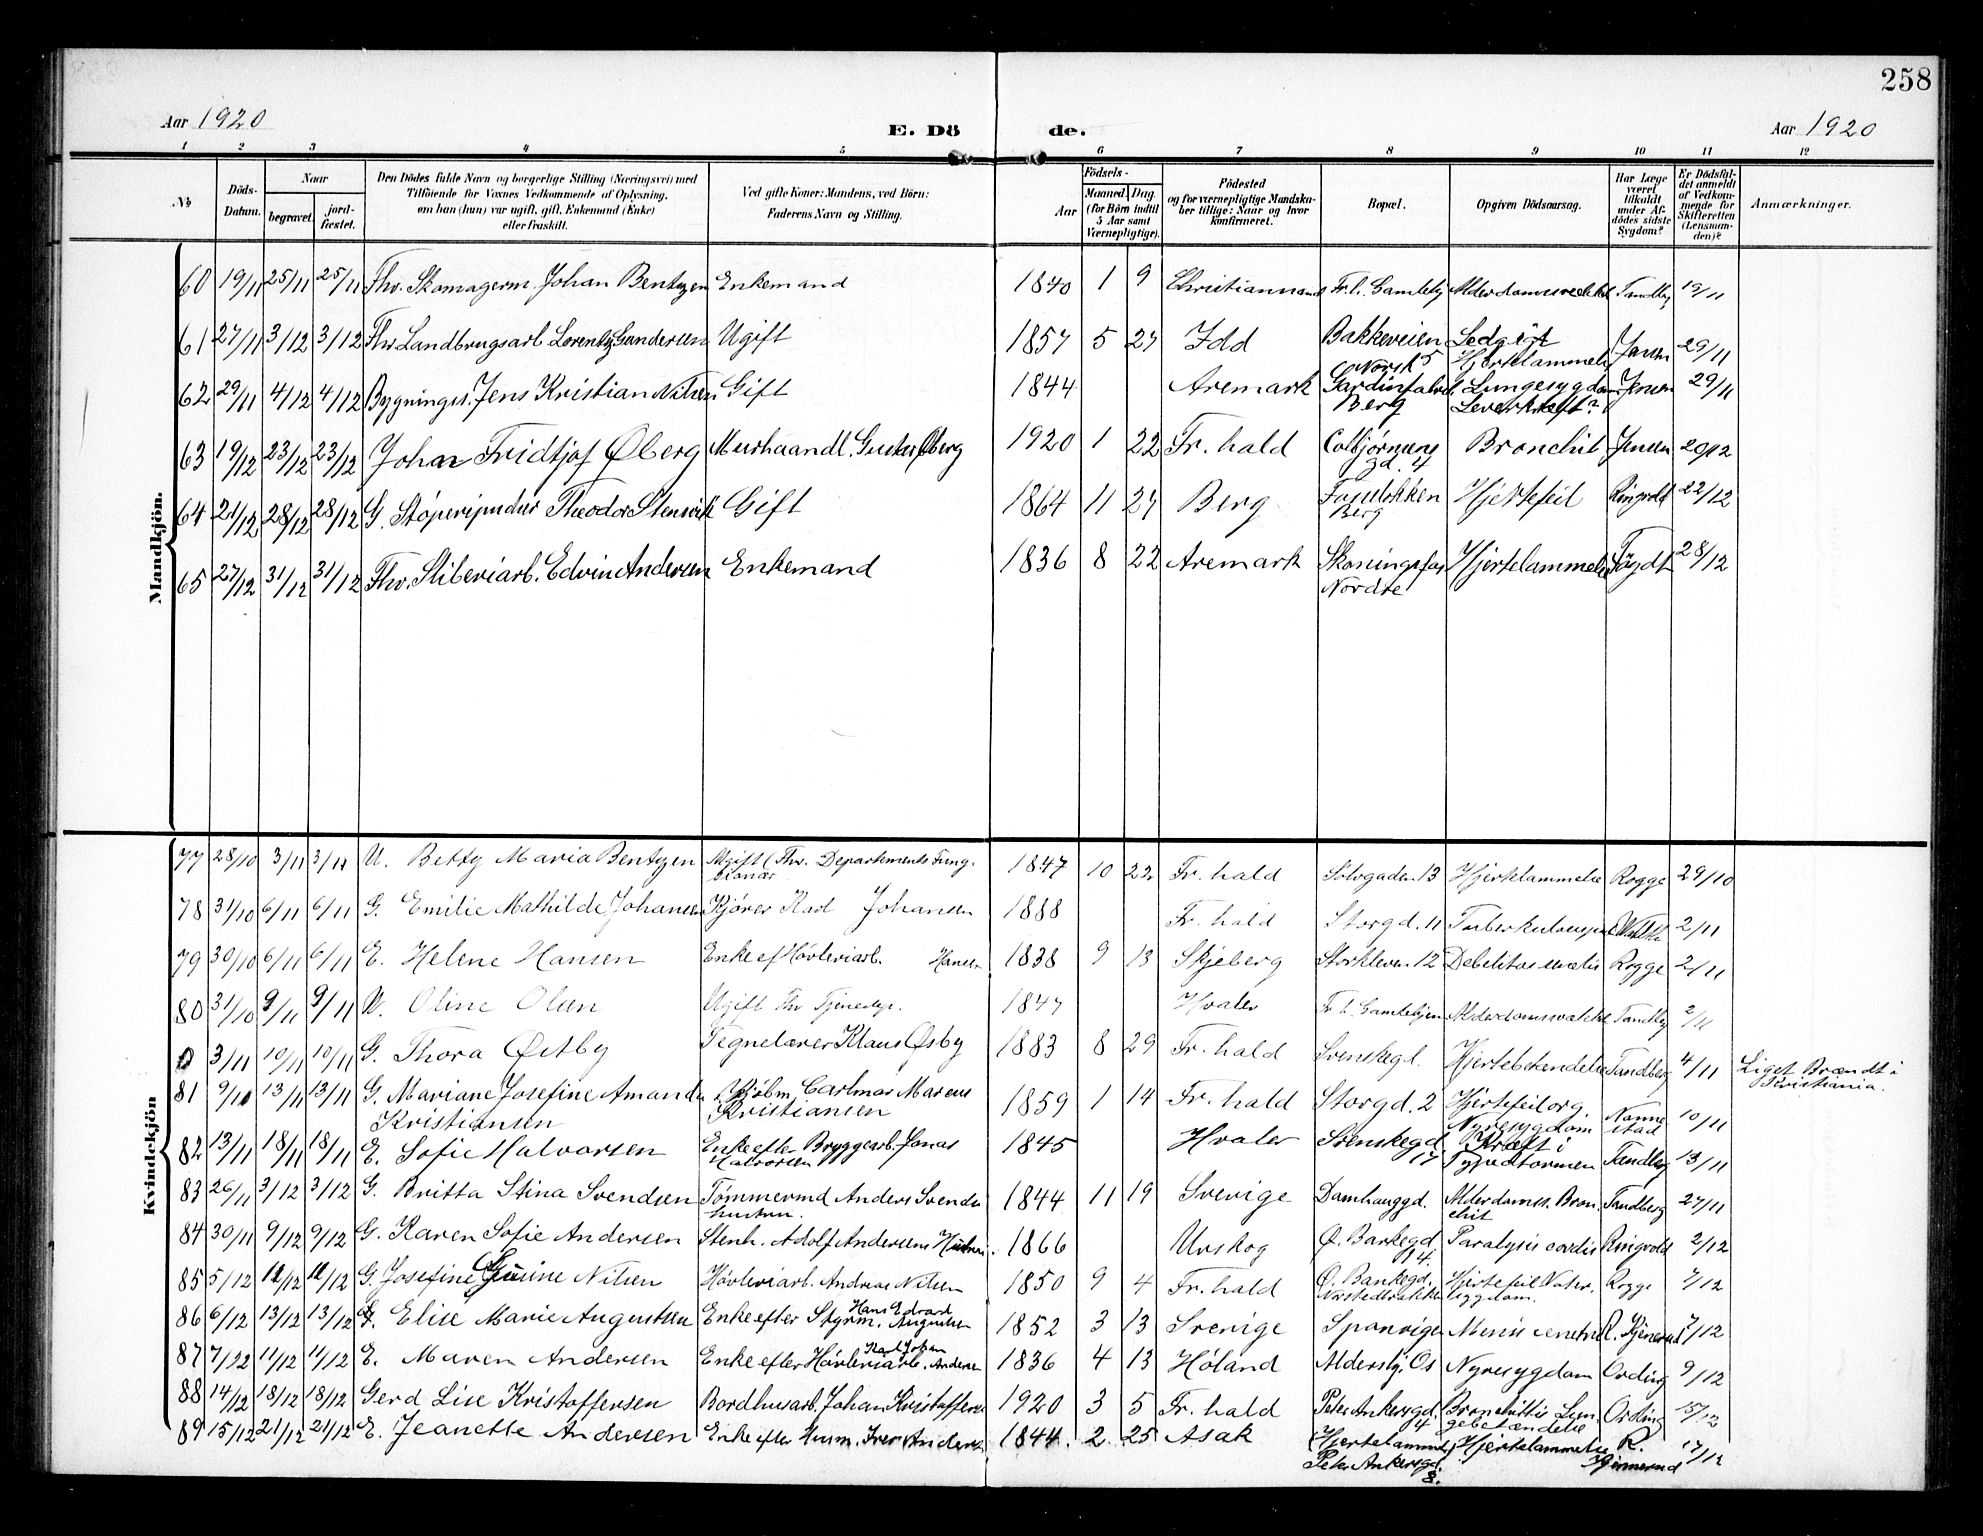 258
Aar 1920
E. Dö
de.
Aar 1920
1 2 3 4 5 6 7 8 9 10 11 12
No
Döds-
Datum.
Naar
begravet.
jord-
fæstet.
Den Dödes fulde Navn og borgerlige Stilling (Næringsvei) med
Tilföiende for Voxnes Vedkommende af Oplysning,
om han (hun) var ugift, gift, Enkemand (Enke)
eller fraskilt.
Ved gifte Koner: Mandens, ved Börn:
Faderens Navn og Stilling.
Födsels-
Aar
Maaned.
Dag.
(for Börn indtil
5 Aar samt
Værnepligtige).
Födested
og for værnepligtige Mandska-
ber tillige: Naar og hvor
konfirmeret.
Bopæl.
Opgiven Dödsaarsag.
Har Læge
været
tilkaldt
under Af-
dödes sidste
Sygdom?
Er Dödsfal-
det anmeldt
af Vedkom-
mende for
Skifteretten
(Lensman-
den)?
Anmærkninger.
Mandkjön.
60 19/11 25/11 25/11 Fhv. Skomagerm. Johan Bentzen Enkemand 1840 1 9 Christiansand Fr.h. Gamlehj Tandberg 19/11
61 27/11 3/12 3/12 Fhv Landbrugsarb. Lorentz Gundersen Ugift 1857 5 27 Idd Bakkeveien 5 Ledgigt Hjertelammelse Jensen 29/11
62 29/11 4/12 4/12 Bygnings. Jens Kristian Nilsen Gift 1844 Aremark Norsk Gardinfabrik Berg Lungesygdom Leverkræft? Jensen 29/11
63 19/12 23/12 23/12 Johan Fridtjof Øberg Murhaandl. Gustav Øberg 1920 1 22 Fr.hald Colbjørnsens gd. 4 Bronchit Jensen 20/12
64 21/12 28/12 28/12 G. Theodor Stensvik Gift 1864 11 27 Berg Berg Hjertefeil Ringvold 22/12
65 27/12 31/12 31/12 Fhv. Sliberiarb. Edvin Andersen Enkemand 1836 8 22 Aremark Skoningsfos Nordre Hjertelammelse 28/12
Kvindekjön
77 28/10 3/11 3/11 U. Betty Maria Bentzen Ugift (Fhv. Departements Fung-
tionær 1847 10 22 Fr.hald Solvgaden 13 Hjertelammelse Rogge 29/10
78 31/10 6/11 6/11 G. Emilie Mathilde Johansen Kjører Karl Johansen 1888 Fr.hald Storgd. 11 2/11
79 30/10 6/11 6/11 E. Helene Hansen Enke ef Høvleriarb. Hansen 1838 9 13 Skjeberg Storkleven 12 Debilitas senilis Rogge 2/11
80 31/10 9/11 9/11 U. Oline Olsen Ugift Fhv Tjenestep. 1847 Hvaler Fr.h. Gamlehjem Tandberg 2/11
0 3/11 10/11 10/11 G. Thora Østby Tegnelærer Klaus Øsby 1883 8 29 Fr.hald Svenskegd. Hjertebetændelse Tandberg 4/11 Liget Brændt i
Kristiania.
81 9/11 13/11 13/11 G. Mariane Josefine Amanda
Kristiansen Kjøbm. Carlmar Marcus
Kristiansen 1859 1 14 Fr.hald Storgd. 2 Hjertefeil og.
Nyresygdom Nannestad 10/11
82 13/11 18/11 18/11 E. Sofie Halvorsen Enke efter Bryggearb. Jonas
Halvorsen 1845 Hvaler Svenskegd.
17 Kræft i
Tandberg 13/11
83 26/11 3/12 3/12 G. Britta Stina Svendsen Tømmermd Anders Svendsens
hustru. 1844 11 19 Sverige Damhauggd. Alderdomss. Bron-
chit Tandberg 27/11
84 30/11 9/12 9/12 G. Karen Sofie Andersen Stenh. Adolf Andersens Hustru. 1866 Urskog Ø. Bankegd.
14. Paralysis cordis Ringvold 2/12
85 5/12 12/12 12/12 G. Josefine Nilsen Høvleriarb. Andreas Nilsen 1850 9 4 Fr.hald Ø. Bankegd. Hjertefeil Vater-
sygdom. Rogge 7/12
86 6/12 13/12 13/12 E. Elise Marie Augustsen Enke efter Styrm. Hans Edvard
Augustsen 1852 3 13 Sverige Spanvigen 7/12
87 7/12 11/12 11/12 E. Maren Andersen Enke efter Høvleriarb. Karl Johan
Andersen 1836 4 13 Høland Aldershj. Os Nyresygdom Ording 9/12
88 14/12 18/12 18/12 Gerd Lise Kristoffersen Bordhusarb. Johan Kristoffersen 1920 3 5 Fr.hald Peter Ankersgd.
4 Bronchittis Lun-
gebetændelse Ording 15/12
89 15/12 21/12 21/12 E. Jeanette Andersen Enke efter Husm. Iver Andersen 1844. 2 25 Asak (Hjertelammelse)
Peter Ankersgd.
8. Hjertelammelse R. 17/12